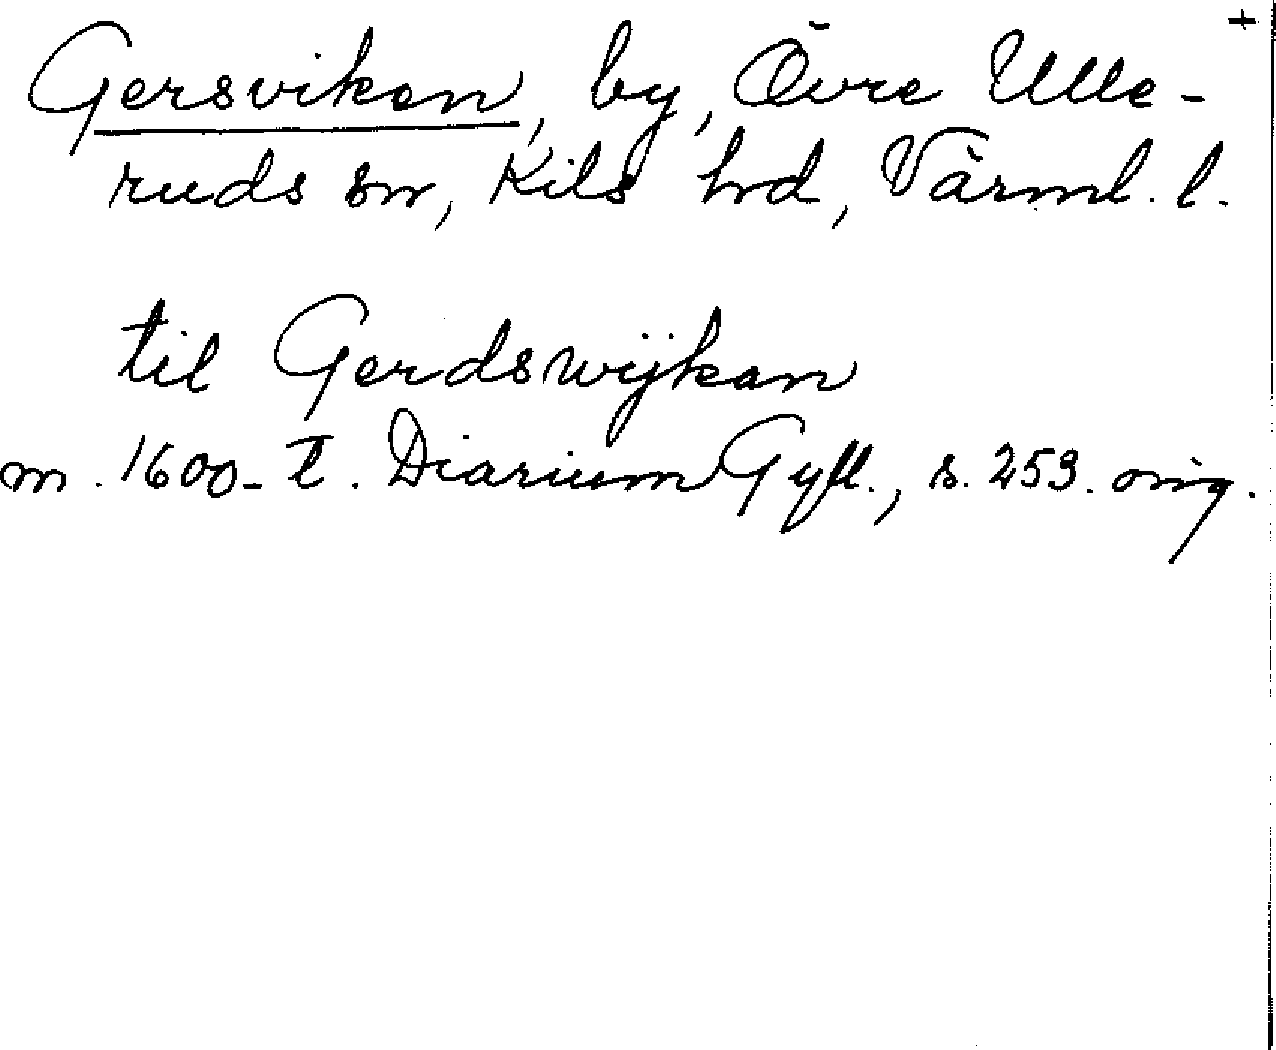 +
Gersviken, by, Övre Ulle-
ruds sn, Kils hrd, Värml. l.
til Gerdswijkan
m. 1600-t. Diarium Gyll., s. 253. orig.